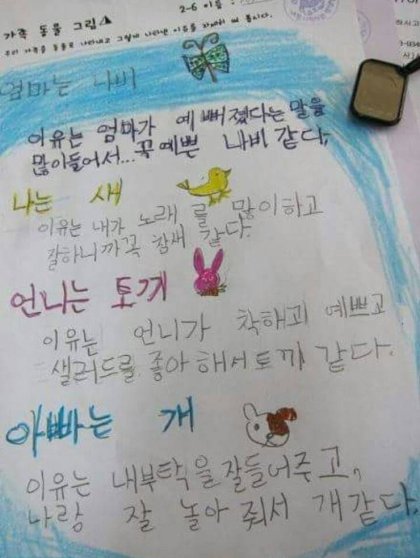 가족 동물 그림
2-6 이름 :
우리 가족을 동물로 나타내고 그렇게 나타낸 이유를 자세히 써 봅시다.
엄마는 나비
이유는 엄마가 예뻐졌다는 말을
많이들어서...꼭예쁜 나비 같다.
나는 새
이유는 내가 노래를 많이하고
잘하니까꼭 참새 같다.
언니는 토끼
이유는 언니가 착해고 예쁘고
샐러드를 좋아해서토끼 같다.
아빠는 개
이유는 내부탁을잘들어주고,
나랑 잘 놀아 줘서 개같다.